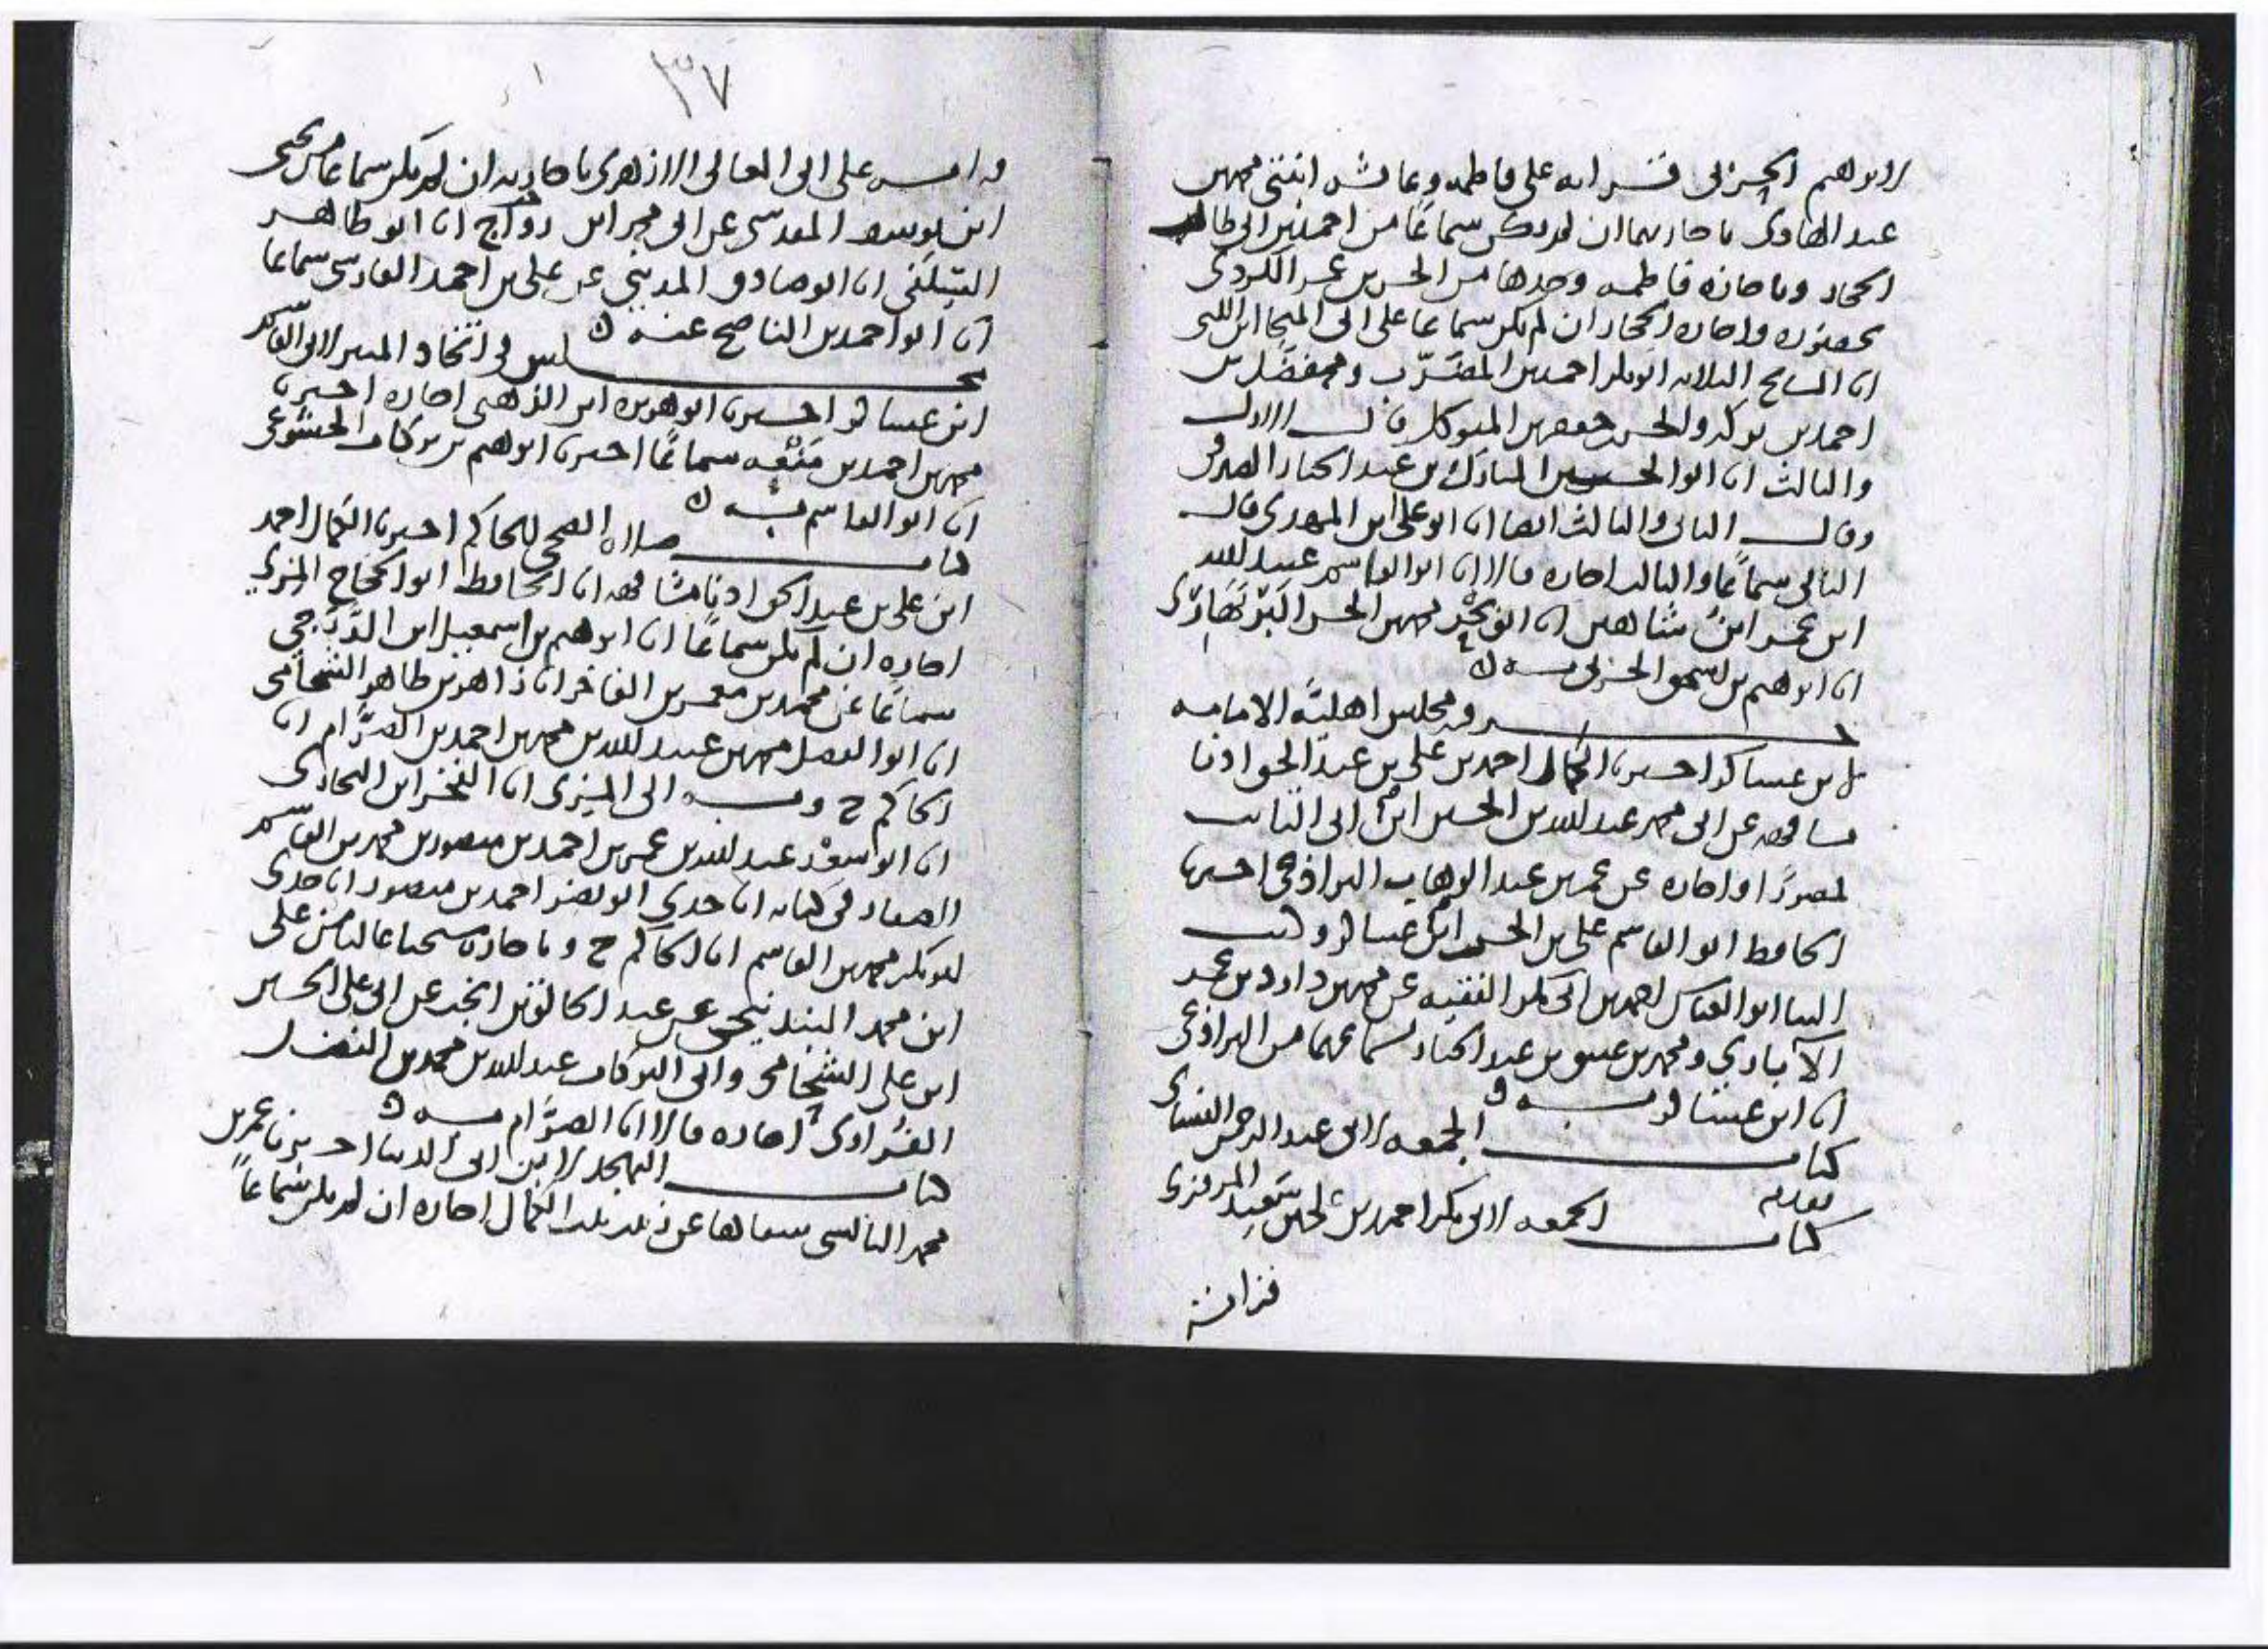 لابرهيم الحربي قرأته على فاطمه وعائشه ابنتي محمد بن
عبد الهادي باجازتهما ان لم يكن سماعا من احمد بن ابي طالب
الحجار وباجازة فاطمه وحدها من الحسن بن عمر الكردي
بحضوره واجازه الحجار ان لم يكن سماعا على ابي المنجا ابن اللتي
انا المشايخ الثلاثه ابو بكر احمد بن المقرب ومحمد
احمد بن بركه والحسن بن جعفر بن المتوكل قال الاول
والثالث انا ابو الحسين المبارك بن عبد الجبار الصيرفي
وقال الثاني والثالث ايضا انا ابو علي ابن المهدي قال
الثاني سماعا والثالث اجازه قالا انا ابو القاسم عبيد الله
ابن عمر ابن شاهين انا ابو بحر محمد بن الحسن البربهاري
انا ابرهيم بن اسحق الحربي به
فيه مجلس اهلية الامامه
بن عساكر اخبرنا الكمال احمد بن علي بن عبد الحق اذنا
مشافهه عن ابي محمد عبد الله بن الحسين ابن ابي التائب
حضورا واجازه عن محمد بن عبد الوهاب البراذعي اخبرنا
الحافظ ابو القاسم علي بن الحسن ابن عساكر وكتب
الينا ابو العباس احمد بن ابي بكر الفقيه عن محمد بن داود بن عمر
الآبادي ومحمد بن عبد الجبار بسماعهما من البراذعي
انا ابن عساكر به
كتاب الجمعه لابي عبد الرحمن النسائي
تقدم
كتاب الجمعه لابي بكر احمد بن علي بن سعيد المروزي
قراته
٣٧
قراته على ابي المعالي الازهري باجازته ان لم يكن سماعا من يحيى
ابن يوسف المقدسي عن ابي محمد ابن رواج انا ابو طاهر
السلفي انا ابو صادق المديني عن علي بن احمد الفارسي سماعا
انا ابو احمد بن الناصح عنه
مجلس في اتخاذ المنبر لابي القاسم
ابن عساكر اخبرنا ابو هريره ابن الذهبي اجازه اخبرنا
محمد بن احمد بن منعه سماعا اخبرنا ابرهيم بن بركات الخشوعي
انا ابو القاسم به
كتاب صلاة الضحى للحاكم اخبرنا الكمال احمد
ابن علي بن عبد الحق اذنا مشافهه انا الحافظ ابو الحجاج المزي
اجازه ان لم يكن سماعا انا ابرهيم بن اسمعيل ابن الدرجي
سماعا عن محمد بن معمر بن الفاخر انا زاهر بن طاهر الشحامي
انا ابو الفضل محمد بن عبيد الله بن محمد بن احمد بن الصرام انا
الحاكم ح وبه الى المزي انا الفخر ابن البخاري
انا ابو سعد عبد الله بن عمر بن احمد بن منصور بن محمد بن القاسم
الصفار في كتابه انا جدي ابو نصر احمد بن منصور انا جدي
ابو بكر محمد بن القاسم انا الحاكم ح وباجازه شيخنا عاليا من علي
ابن محمد البندنيجي عن عبد الخالق بن انجب عن ابي علي الحسن
ابن علي الشحامي وابي البركات عبد الله بن محمد بن الفضل
الفراوي اجازه قالا انا الصرام به
كتاب التهجد لابن ابي الدنيا اخبرنا عمر بن
محمد البالسي سماعا عن زينب بنت الكمال اجازه ان لم يكن سماعا